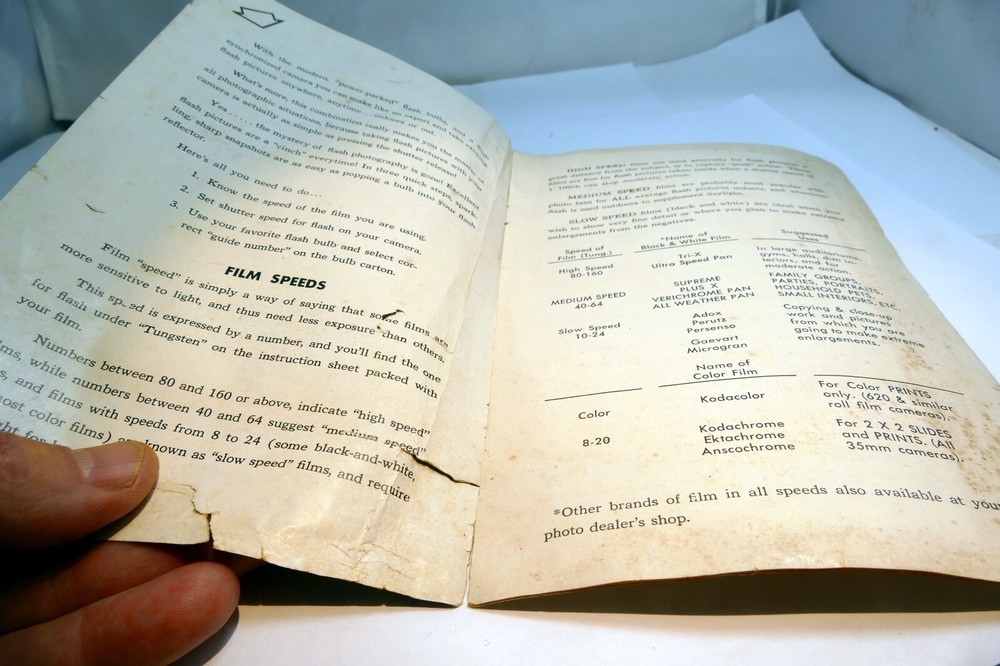 With the modern, "power-packed" flash bulbs, and a
synchronized camera you can make like an expert and take a
flash pictures anywhere, anytime indoors or out.
What's more, this combination really makes you the master of
all photographic situations, because taking flash pictures with your
camera is actually as simple as pressing the shutter release!
Yes..... the mystery of flash photography is gone! Excellent
flash pictures are a "cinch" everytime! In three quick steps, spark-
ling, sharp snapshots are as easy as popping a bulb into your flash
reflector.
Here's all you need to do...
1. Know the speed of the film you are using.
2. Set shutter speed for flash on your camera.
3. Use your favorite flash bulb and select cor-
rect "guide number" on the bulb carton.
FILM SPEEDS
Film "speed" is simply a way of saying that some films are
more sensitive to light, and thus need less exposure than others.
This speed is expressed by a number, and you'll find the one
for flash under "Tungsten" on the instruction sheet packed with
your film.
Numbers between 80 and 160 or above, indicate "high speed"
while numbers between 40 and 64 suggest "medium speed"
and films with speeds from 8 to 24 (some black-and-white,
most color films) known as "slow speed" films, and require
HIGH SPEED films are used generally for flash pictures
great distance from the subject, or to capture
films are fine for flash pictures taken
MEDIUM SPEED films are probably most popular with
photo fans for ALL average flash pictures indoors, and wherever
flash is used outdoors to supplement daylight.
SLOW SPEED films (black and white) are ideal when you
wish to show very fine detail or where you plan to make extreme
enlargements from the negatives.
Speed of Film (Tung.) *Name of Black & White Film Suggested Uses
High Speed 80-160
Tri-X
Ultra Speed Pan
In large auditoriums,
gyms, halls, dim in-
teriors, and for
moderate action.
MEDIUM SPEED 40-64
SUPREME
PLUS X
VERICHROME PAN
ALL WEATHER PAN
FAMILY GROUPS,
PARTIES, PORTRAITS,
HOUSEHOLD PETS,
SMALL INTERIORS, ETC.
Slow Speed 10-24
Adox
Perutz
Persenso
Gaevart
Microgran
Copying & close-up
work and pictures
from which you are
going to make extreme
enlargements.
Name of Color Film
Color
Kodacolor
For Color PRINTS
only. (620 & similar
roll film cameras).
8-20
Kodachrome
Ektachrome
Anscochrome
For 2 X 2 SLIDES
and PRINTS. (All
35mm cameras).
*Other brands of film in all speeds also available at your
photo dealer's shop.